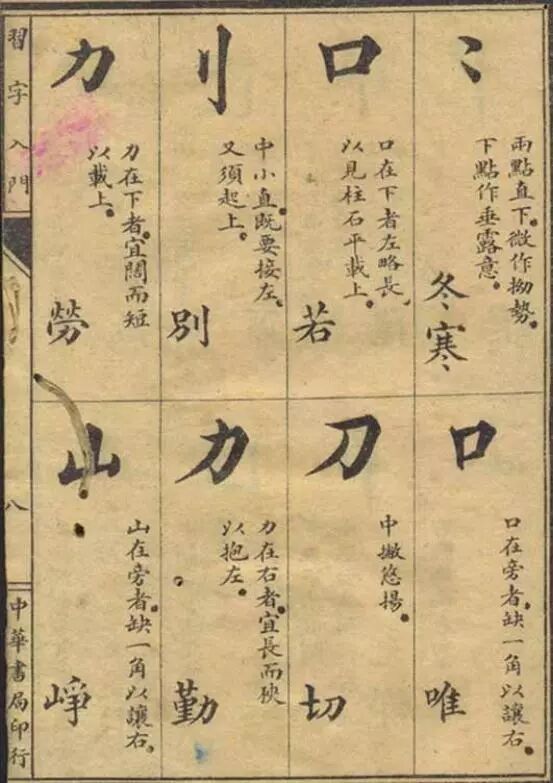 ⺀
兩點直下。微作拗勢。
下點作垂露意。
冬寒
口
口在下者左略長。
以見柱石平載上。
若
刂
中小直。既要接左。
又須起上。
別
力
力在下者。宜闊而短
以載上。
勞
口
口在旁者。缺一角以讓右。
唯
刀
中撇悠揚。
切
力
力在右者。宜長而狹
以抱左。
勤
山
山在旁者。缺一角以讓右。
崢
習字入門
八
中華書局印行